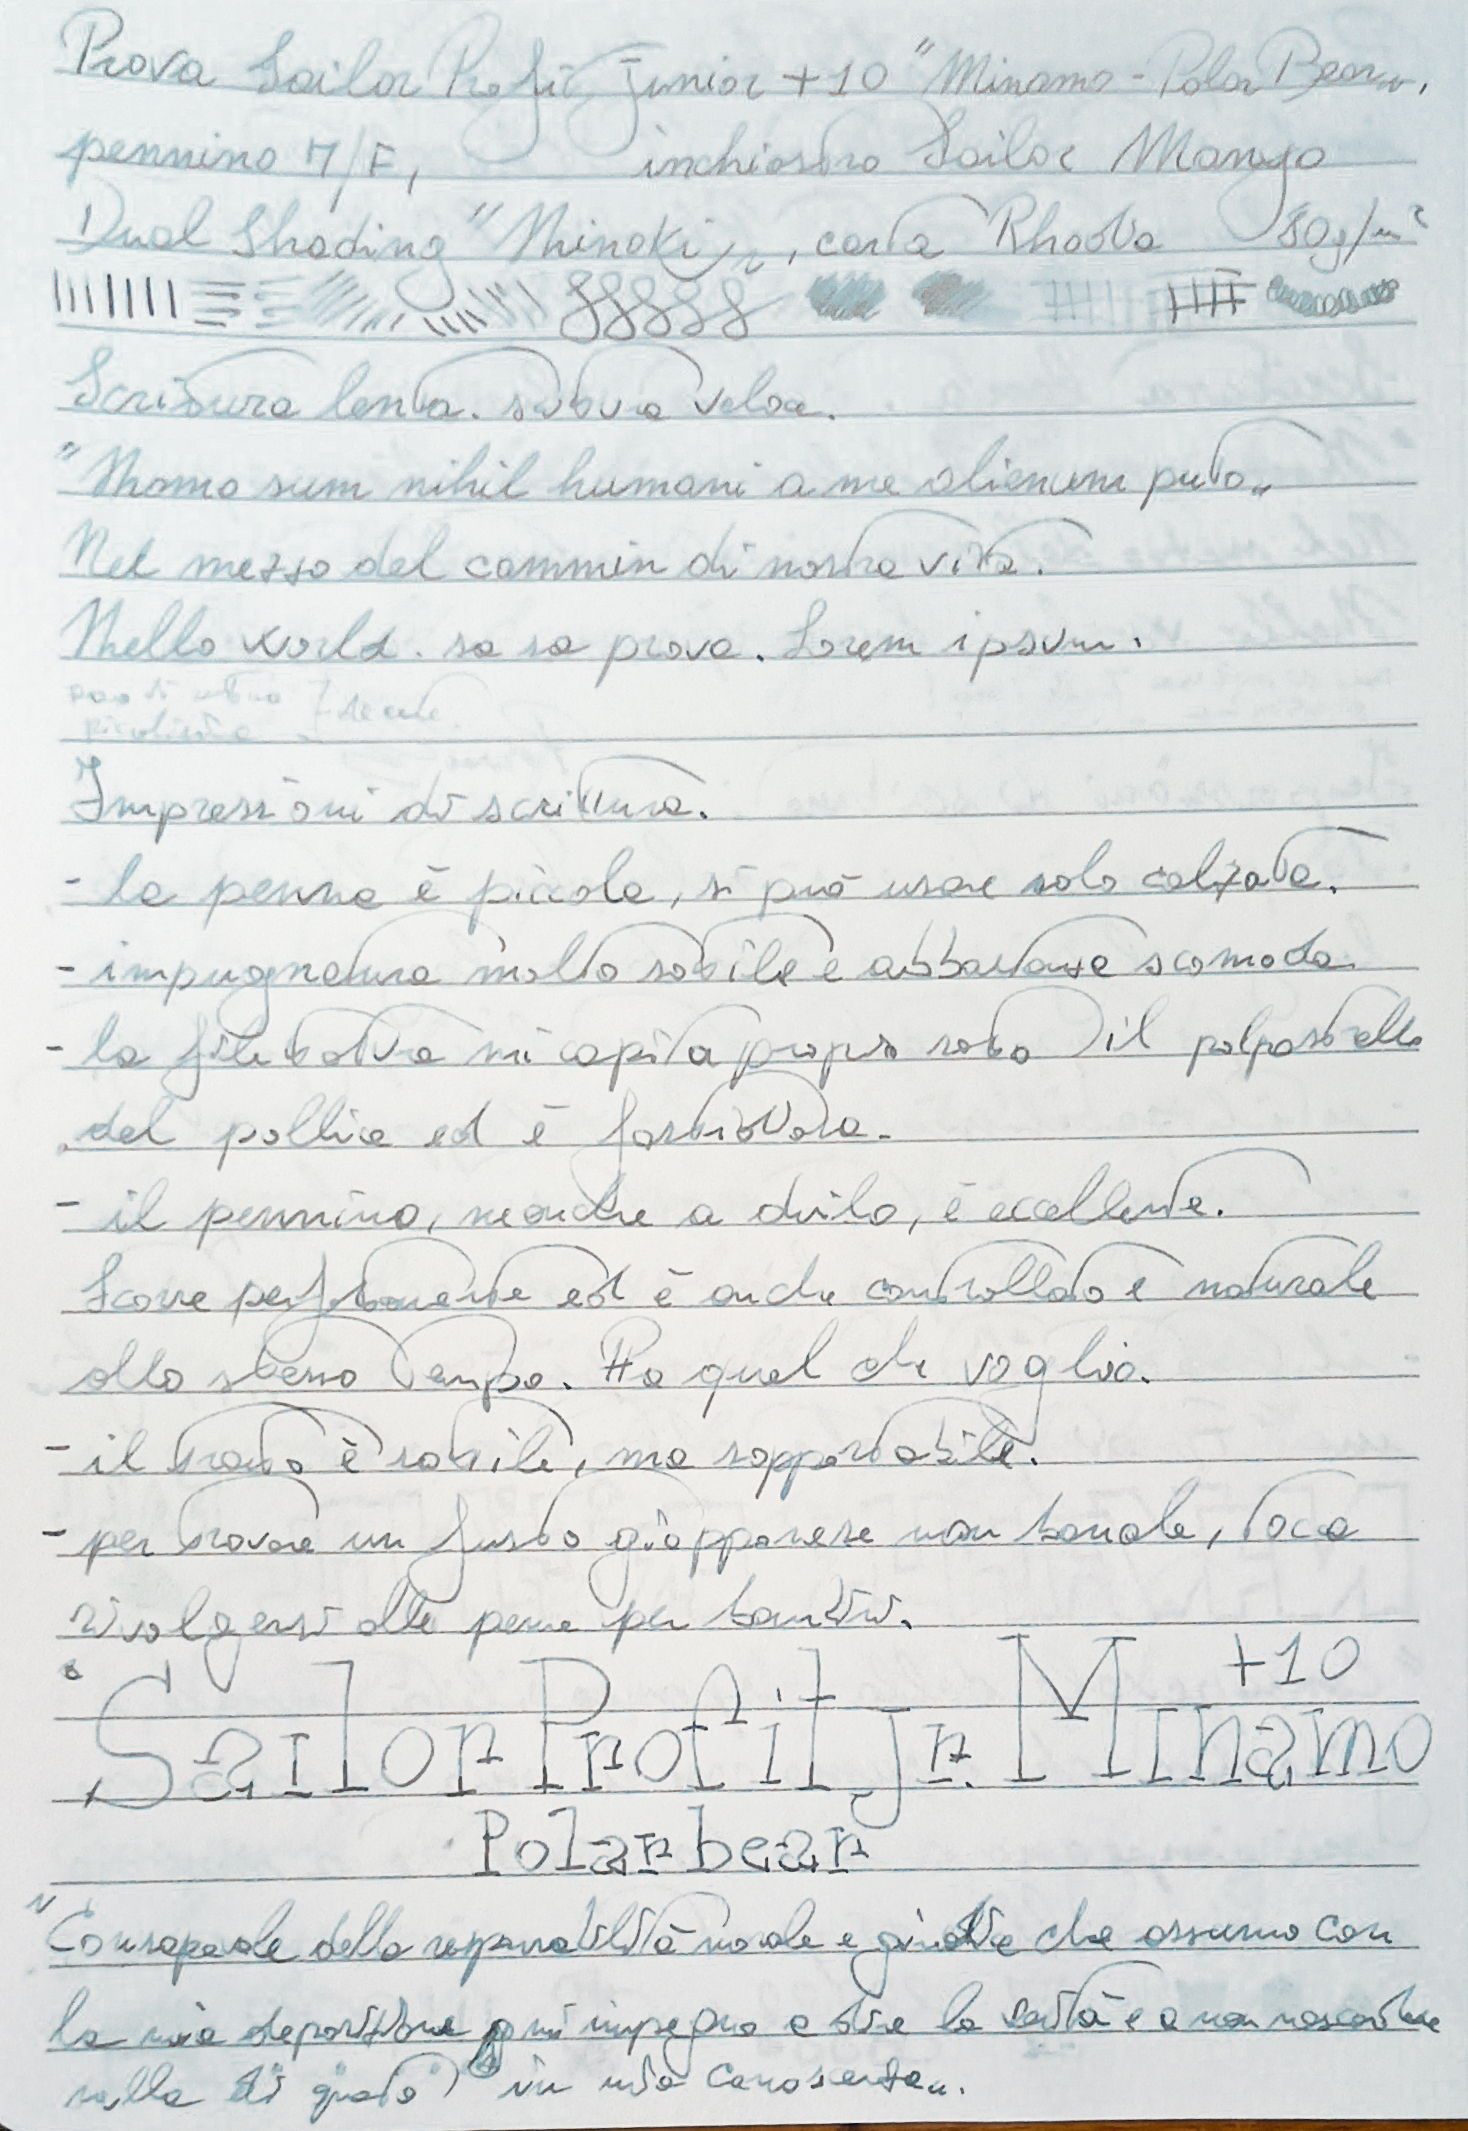 Prova Sailor Profit Junior +10 "Minamo - Polar Bear",
pennino M/F, inchiostro Sailor Manyo
Dual Shading "Hinoki", carta Rhodia 80g/m²
Scrittura lenta. scrittura veloce.
"Homo sum nihil humani a me alienum puto"
Nel mezzo del cammin di nostra vita.
Hello world. sa sa prova. Lorem ipsum.
Impressioni di scrittura.
- la penna è piccola, si può usare solo calzata.
- impugnatura molto sottile e abbastanza scomoda
- la filettatura mi capita proprio sotto il polpastrello
del pollice ed è fastidiosa.
- il pennino, neanche a dirlo, è eccellente.
Scorre perfettamente ed è anche controllato e naturale
allo stesso tempo. Ha quel che voglio.
- il tratto è sottile, ma sopportabile.
- per trovare un fusto giapponese non banale, tocca
rivolgersi alle penne per bambini.
+10
Sailor Profit Jr. Minamo
Polar bear
"Consapevole della responsabilità morale e giuridica che assumo con
la mia deposizione mi impegno a dire la verità e a non nascondere
nulla di quanto in mia conoscenza".